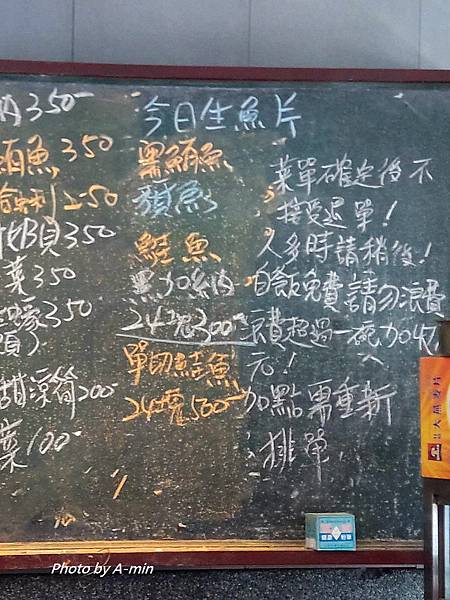 350-
鮪魚350
250
貝350
菜350
350
溪筒200-
葉100-
今日生魚片
黑鮪魚
旗魚
鮭魚
黑加納
24塊300-
單切鮭魚
24塊500-
菜單確定後不
接受退單!
人多時請稍後!
白飯免費請勿浪費
浪費超過一碗加40
元!
加點需重新
排單
Photo by A-min